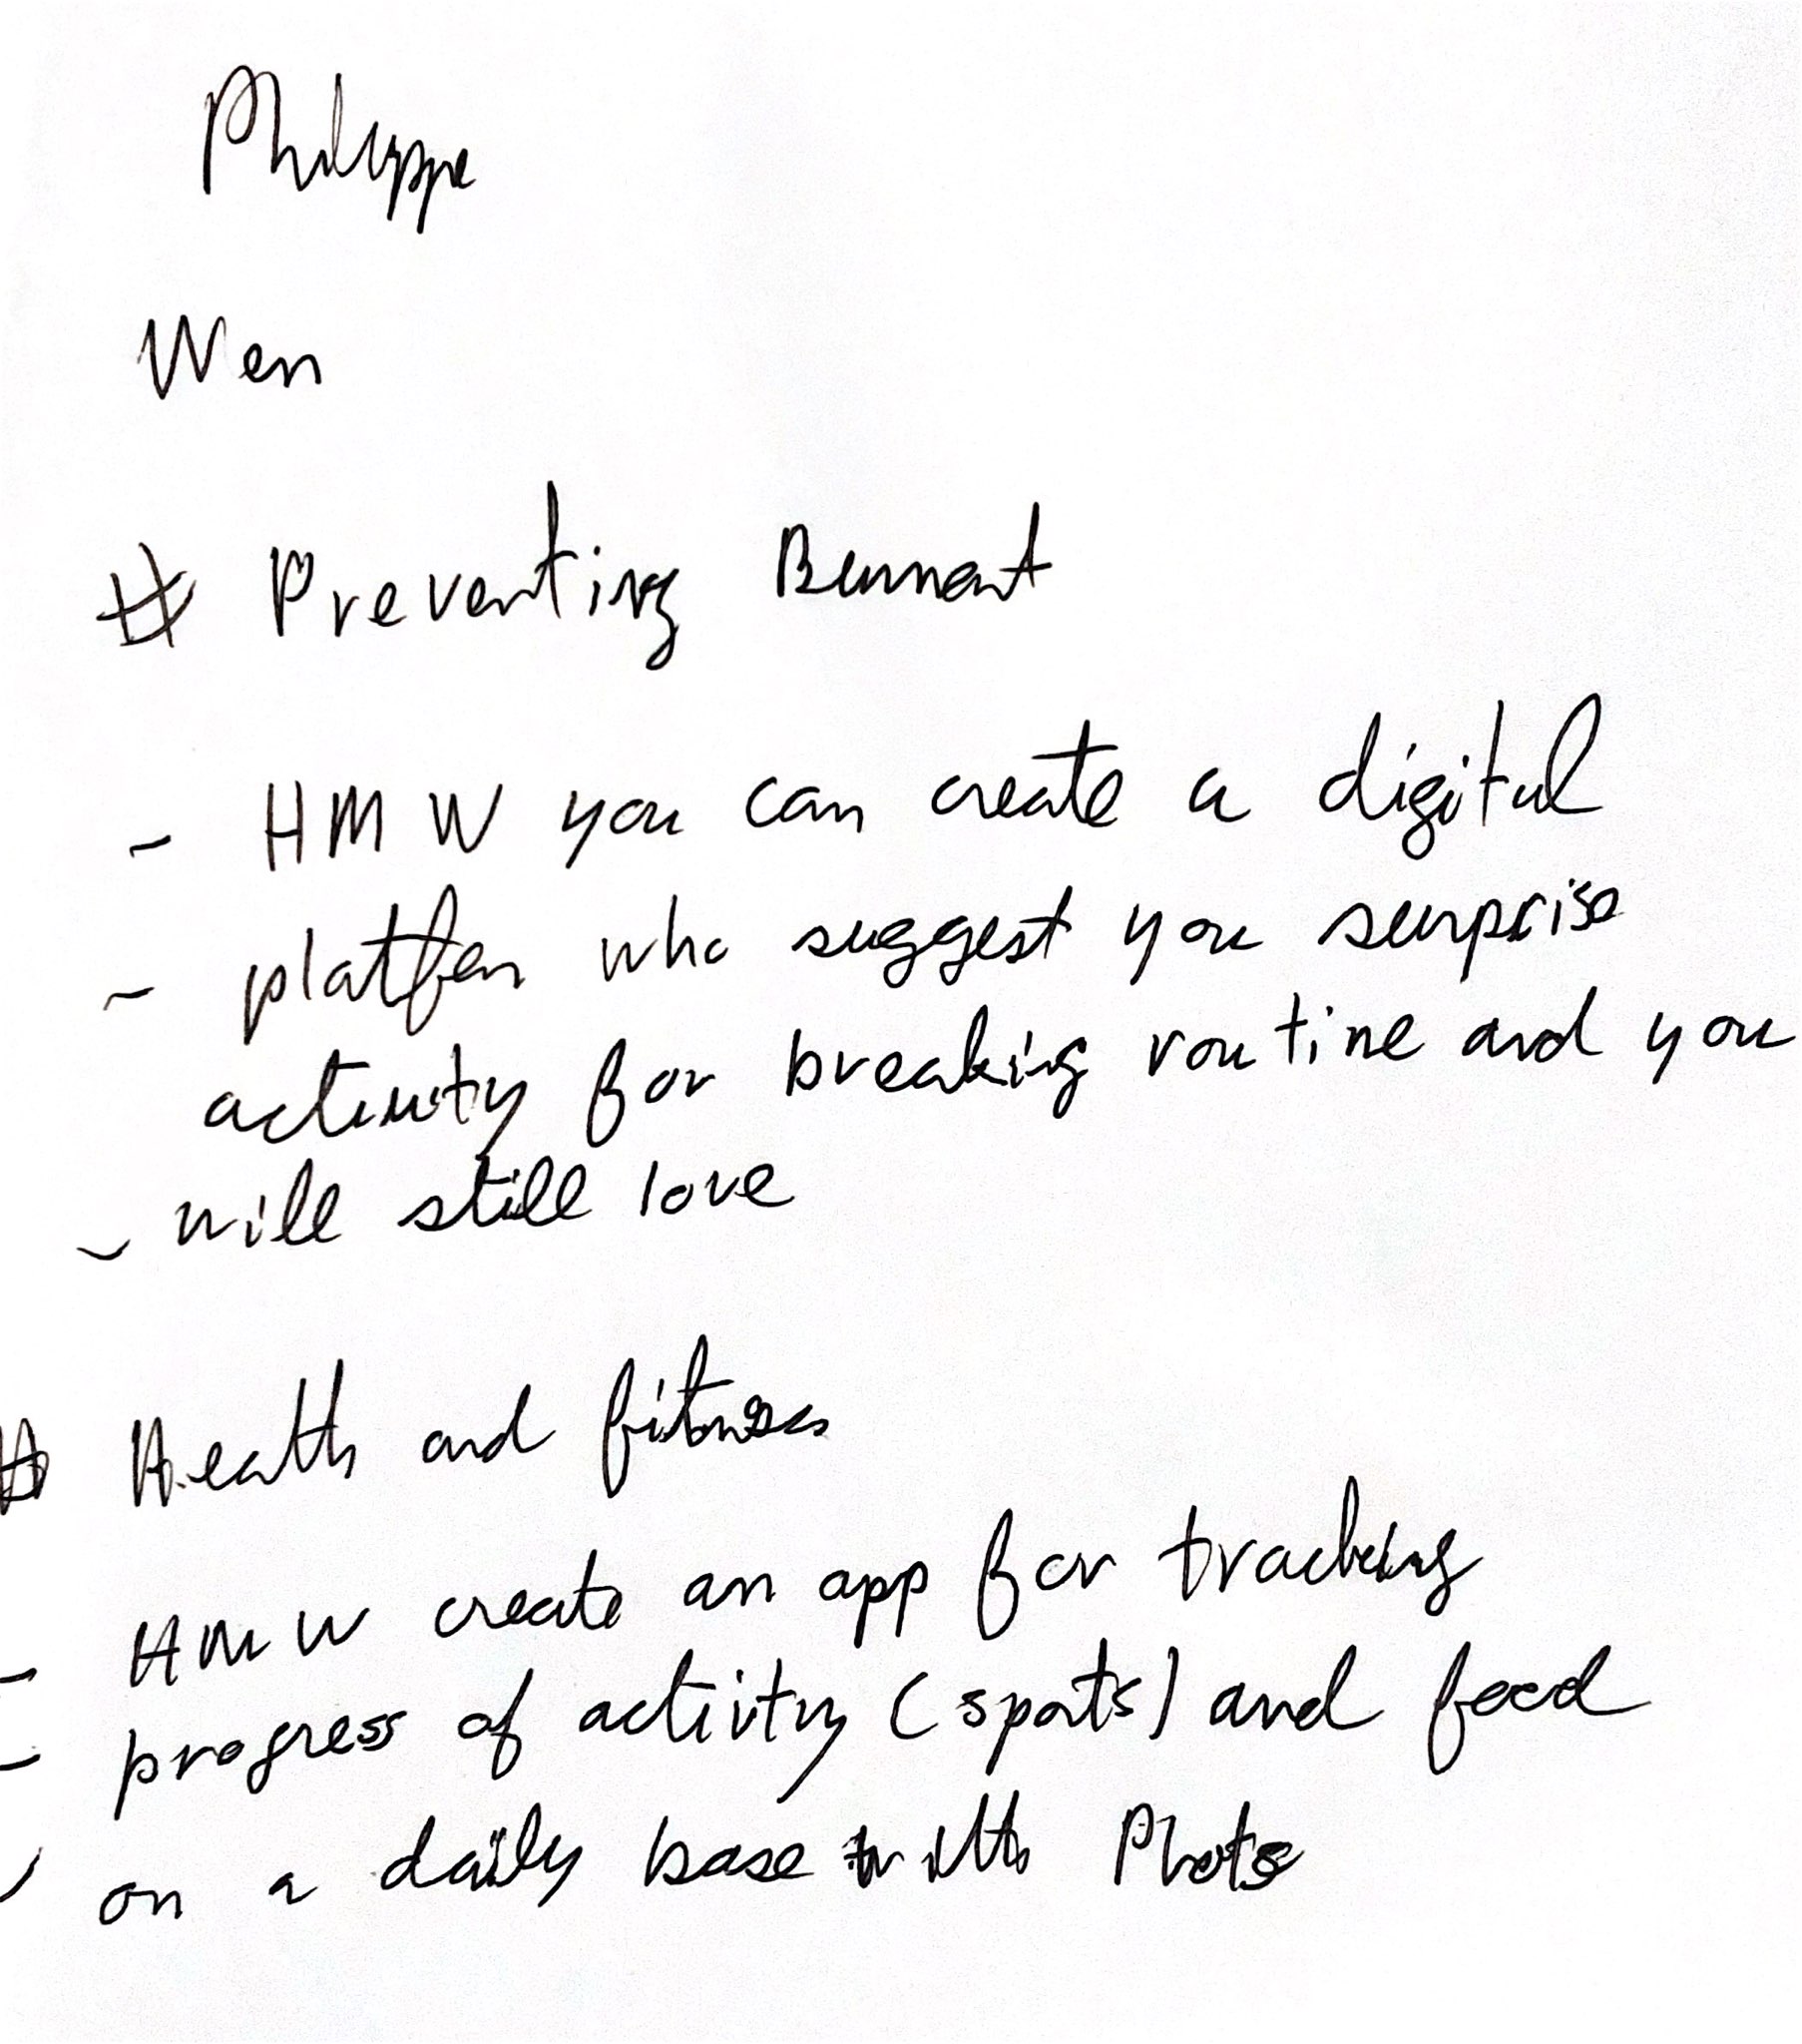 Philippe
Wen
# Preventing Burnout
- HMW you can create a digital
- platform who suggest you surprise
activity for breaking routine and you
- will still love
# Health and fitness
- HMW create an app for tracking
- progress of activity (sports) and food
- on a daily base with Photos